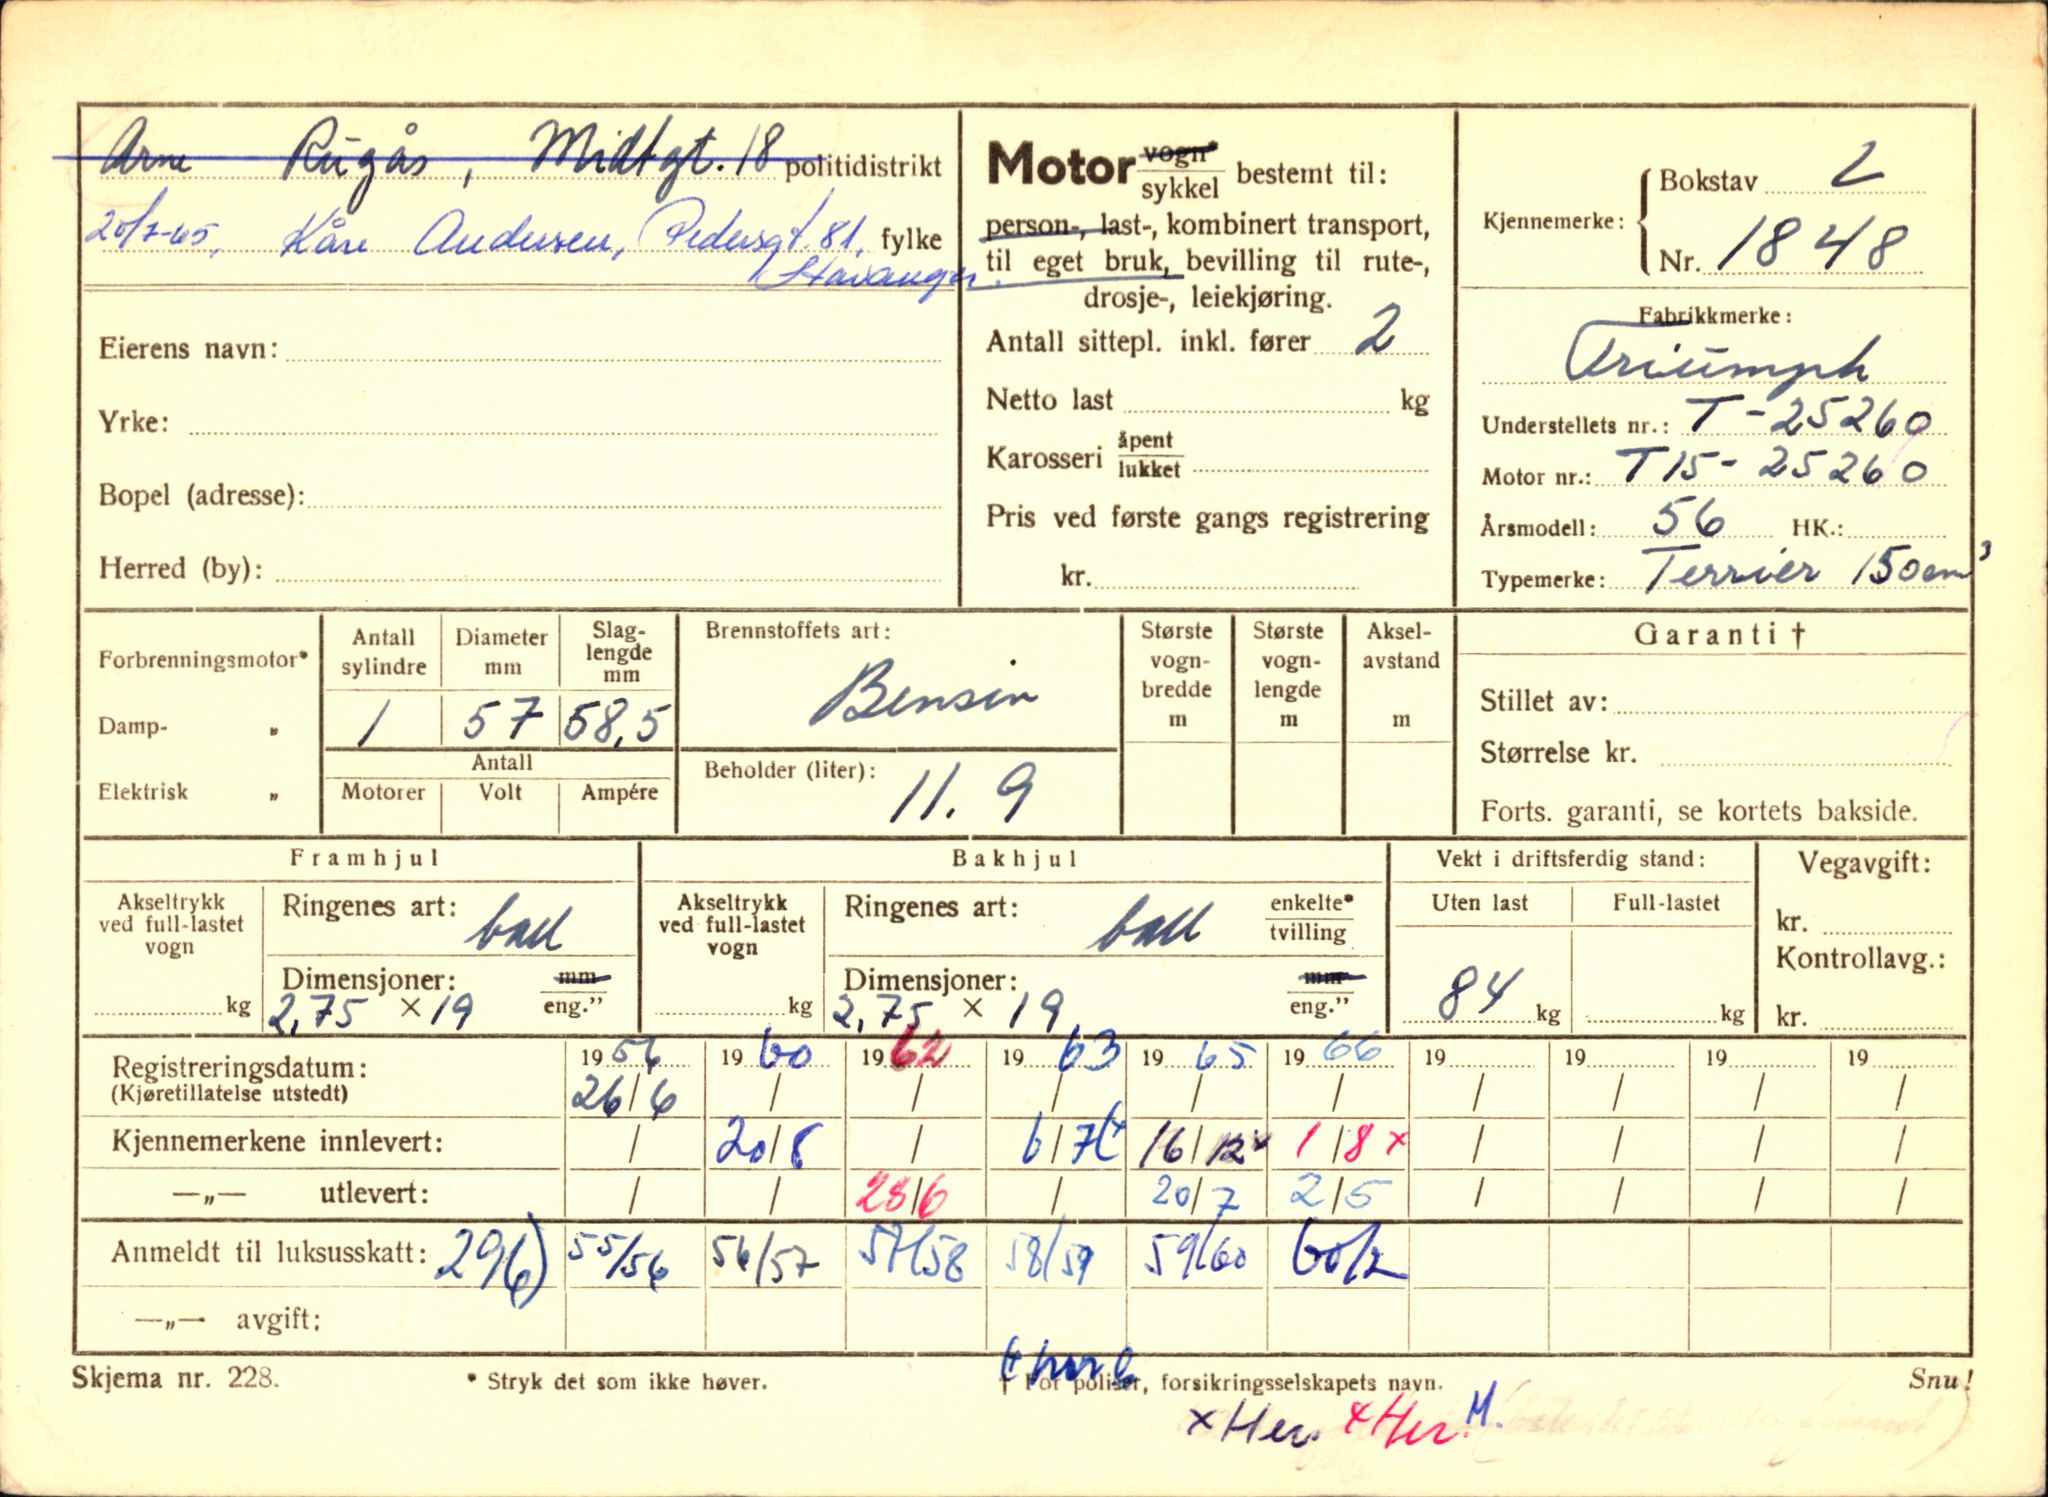 Arne Rugås, Midtgt. 18 politidistrikt
20/7-65, Kåre Andersen, Pedersgt. 81, fylke
Stavanger.
Eierens navn:
Yrke:
Bopel (adresse):
Herred (by):
Motor vogn* sykkel bestemt til:
person-, last-, kombinert transport,
til eget bruk, bevilling til rute-,
drosje-, leiekjøring.
Antall sittepl. inkl. fører 2
Netto last kg
Karosseri åpent lukket
Pris ved første gangs registrering
kr.
Kjennemerke: Bokstav L
Nr. 1848
Fabrikkmerke:
Triumph
Understellets nr.: T-25260
Motor nr.: T15-25260
Årsmodell: 56 HK.:
Typemerke: Terrier 150cm³
Forbrenningsmotor*
Damp- „
Elektrisk „
Antall sylindre Diameter mm Slag-lengde mm
1 57 58,5
Antall
Motorer Volt Ampére
Brennstoffets art:
Bensin
Beholder (liter):
11.9
Største vogn-bredde m
Største vogn-lengde m
Aksel-avstand m
Garanti †
Stillet av:
Størrelse kr.
Forts. garanti, se kortets bakside.
Framhjul
Akseltrykk ved full-lastet vogn kg
Ringenes art: ball
Dimensjoner: mm eng."
2,75 × 19
Bakhjul
Akseltrykk ved full-lastet vogn kg
Ringenes art: ball enkelte* tvilling
Dimensjoner: mm eng."
2,75 × 19
Vekt i driftsferdig stand:
Uten last Full-lastet
84 kg kg
Vegavgift:
kr.
Kontrollavg.:
kr.
Registreringsdatum: 1956 1960 1962 1963 1965 1966 19 19 19 19
(Kjøretillatelse utstedt) 26/6 / / / / / / / / /
Kjennemerkene innlevert: / 20/8 / 6/7 16/12x 1/8x / / / /
—„— utlevert: / / 28/6 / 20/7 2/5 / / / /
Anmeldt til luksusskatt: 29/6) 55/56 56/57 57/58 58/59 59/60 60/2
—„— avgift:
Skjema nr. 228.
* Stryk det som ikke høver.
† For poliser, forsikringsselskapets navn.
Snu!
x Her. x Her. M.